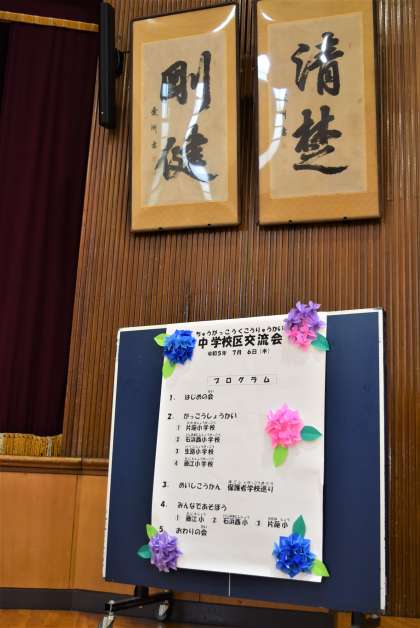 清楚
剛健
ちゅうがっこうくこうりゅうかい
中学校区交流会
令和5年 7月 6日(木)
プログラム
1. はじめの会
2. がっこうしょうかい
① 片葩小学校
② 石浜西小学校
③ 生路小学校
④ 藤江小学校
3. めいしこうかん 保護者学校巡り
4. みんなであそぼう
① 藤江小 ② 石浜西小 ③ 片葩小
5. おわりの会